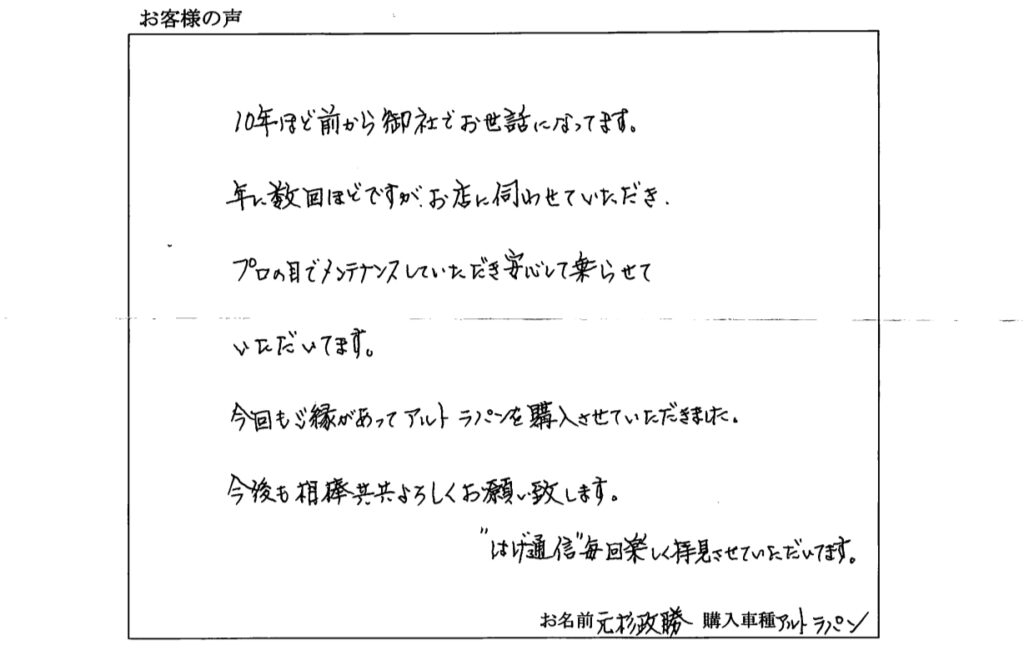 お客様の声
10年ほど前から御社でお世話になってます。
年に数回ほどですが、お店に伺わせていただき、
プロの目でメンテナンスしていただき安心して乗らせて
いただいてます。
今回もご縁があってアルト ラパンを購入させていただきました。
今後も相棒共共よろしくお願い致します。
"はげ通信"毎回楽しく拝見させていただいてます。
お名前 元杉政勝 購入車種 アルト ラパン